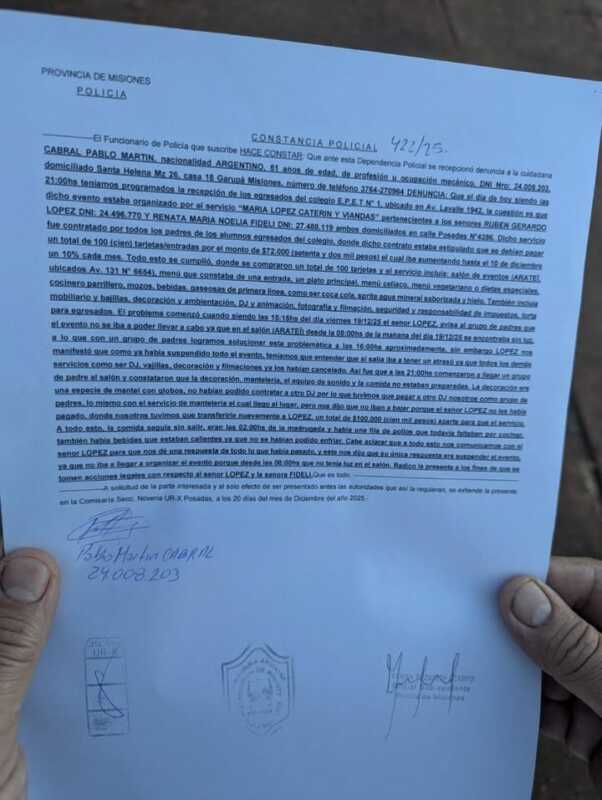 PROVINCIA DE MISIONES
POLICIA
CONSTANCIA POLICIAL 422/25.
----------El Funcionario de Policía que suscribe HACE CONSTAR: Que ante esta Dependencia Policial se recepcionó denuncia a la ciudadana
CABRAL PABLO MARTIN, nacionalidad ARGENTINO, 51 años de edad, de profesión u ocupación mecánico, DNI Nro: 24.008.203,
domiciliado Santa Helena Mz 26, casa 18 Garupá Misiones, número de teléfono 3764-270964 DENUNCIA: Que el día de hoy siendo las
21:00hs teníamos programados la recepción de los egresados del colegio E.P.E.T N° 1, ubicado en Av. Lavalle 1942, la cuestión es que
dicho evento estaba organizado por el servicio "MARIA LOPEZ CATERIN Y VIANDAS" pertenecientes a los senores RUBEN GERARDO
LOPEZ DNI: 24.496.770 Y RENATA MARIA NOELIA FIDELI DNI: 27.488.119 ambos domiciliados en calle Posadas N°4286. Dicho servicio
fue contratado por todos los padres de los alumnos egresados del colegio, donde dicho contrato estaba estipulado que se debían pagar
un total de 100 (cien) tarjetas/entradas por el monto de $72.000 (setenta y dos mil pesos) el cual iba aumentando hasta el 10 de diciembre
un 10% cada mes. Todo esto se cumplió, donde se compraron un total de 100 tarjetas y el servicio incluía: salón de eventos (ARATEÍ,
ubicados Av. 131 N° 6654), menú que constaba de una entrada, un plato principal, menú celiaco, menú vegetariano o dietas especiales,
cocinero parrillero, mozos, bebidas, gaseosas de primera línea, como ser coca cola, sprite agua mineral saborizada y hielo. También incluía
mobiliario y bajillas, decoración y ambientación, DJ y animación, fotografía y filmación, seguridad y responsabilidad de impuestos, torta
para egresados. El problema comenzó cuando siendo las 15:15hs del día viernes 19/12/25 el señor LOPEZ, avisa al grupo de padres que
el evento no se iba a poder llevar a cabo ya que en el salón (ARATEÍ) desde la 08:00hs de la mañana del día 19/12/25 se encontraba sin luz,
a lo que con un grupo de padres logramos solucionar esta problemática a las 16:00hs aproximadamente, sin embargo LOPEZ nos
manifestó que como ya había suspendido todo el evento, teníamos que entender que el salía iba a tener un atraso ya que todos los demás
servicios como ser DJ, vajillas, decoración y filmaciones ya los habían cancelado. Así fue que a las 21:00hs comenzaron a llegar un grupo
de padre al salón y constataron que la decoración, mantelería, el equipo de sonido y la comida no estaban preparadas. La decoración era
una especie de mantel con globos, no habían podido contratar a otro DJ por lo que tuvimos que pagar a otro DJ nosotros como grupo de
padres, lo mismo con el servicio de mantelería el cual llego al lugar, pero nos dijo que no iban a bajar porque el senor LOPEZ no les había
pagado, donde nosotros tuvimos que transferirle nuevamente a LOPEZ, un total de $100.000 (cien mil pesos) aparte para que el servicio.
A todo esto, la comida seguía sin salir, eran las 02:00hs de la madrugada y había una fila de pollos que todavía faltaban por cocinar,
también había bebidas que estaban calientes ya que no se habían podido enfriar. Cabe aclarar que a todo esto nos comunicamos con el
señor LOPEZ para que nos dé una respuesta de todo lo que había pasado, y este nos dijo que su única respuesta era suspender el evento
ya que no iba a llegar a organizar el evento porque desde las 08:00hs que no tenía luz en el salón. Radico la presente a los fines de que se
tomen acciones legales con respecto al señor LOPEZ y la senora FIDELI. Que es todo.----------
----------A solicitud de la parte interesada y al solo efecto de ser presentado antes las autoridades que así la requieran, se extiende la presente
en la Comisaría Secc. Novena UR-X Posadas, a los 20 días del mes de Diciembre del año 2025.-
Pablo Martin CABRAL
24.008.203
UR-X